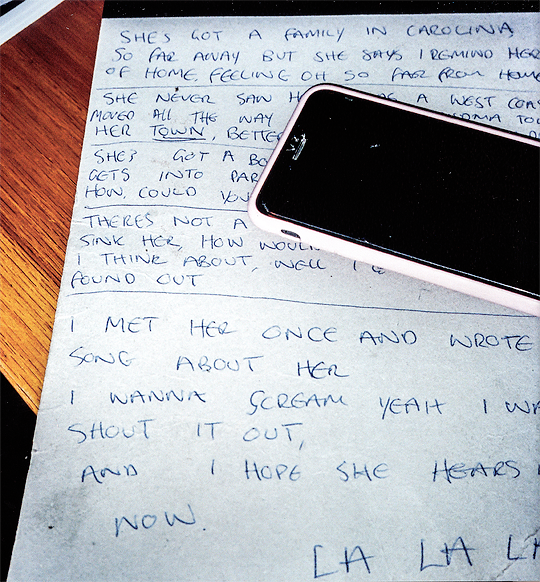 SHES GOT A FAMILY IN CAROLINA
SO FAR AWAY BUT SHE SAYS I REMIND HER
OF HOME FEELING OH SO FAR FROM HOME
SHE NEVER SAW A WEST
MOVED ALL THE WAY
HER TOWN, BETTER
SHES GOT A
GETS INTO
HOW, COULD YOU
THERES NOT A
SINK HER, HOW
I THINK ABOUT, WELL I
FOUND OUT
I MET HER ONCE AND WROTE
SONG ABOUT HER
I WANNA SCREAM YEAH I
SHOUT IT OUT,
AND I HOPE SHE HEARS
NOW.
LA LA